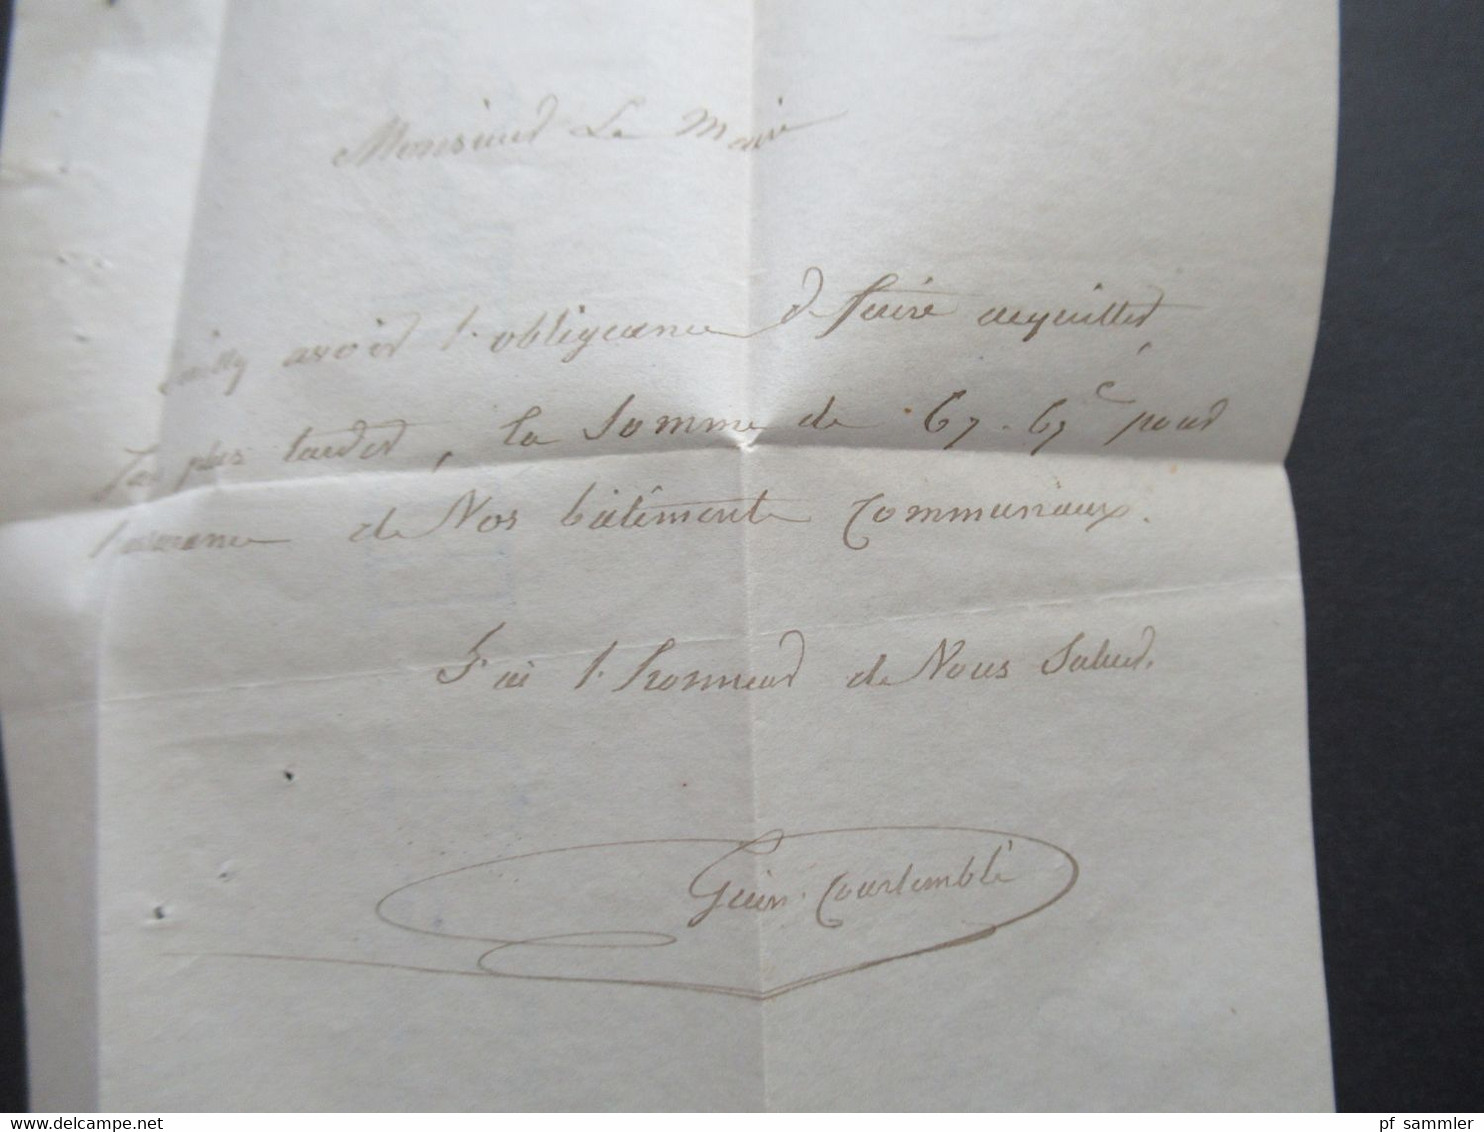 Monsieur Le Maire
Veuilly avoir l'obligeance de faire acquitter
Sans plus tarder, la Somme de 67.67c pour
l'assurance de Nos bâtiments Communaux.
J'ai l'honneur de Vous Saluer.
Guin. Courtemblé
pf_sammler